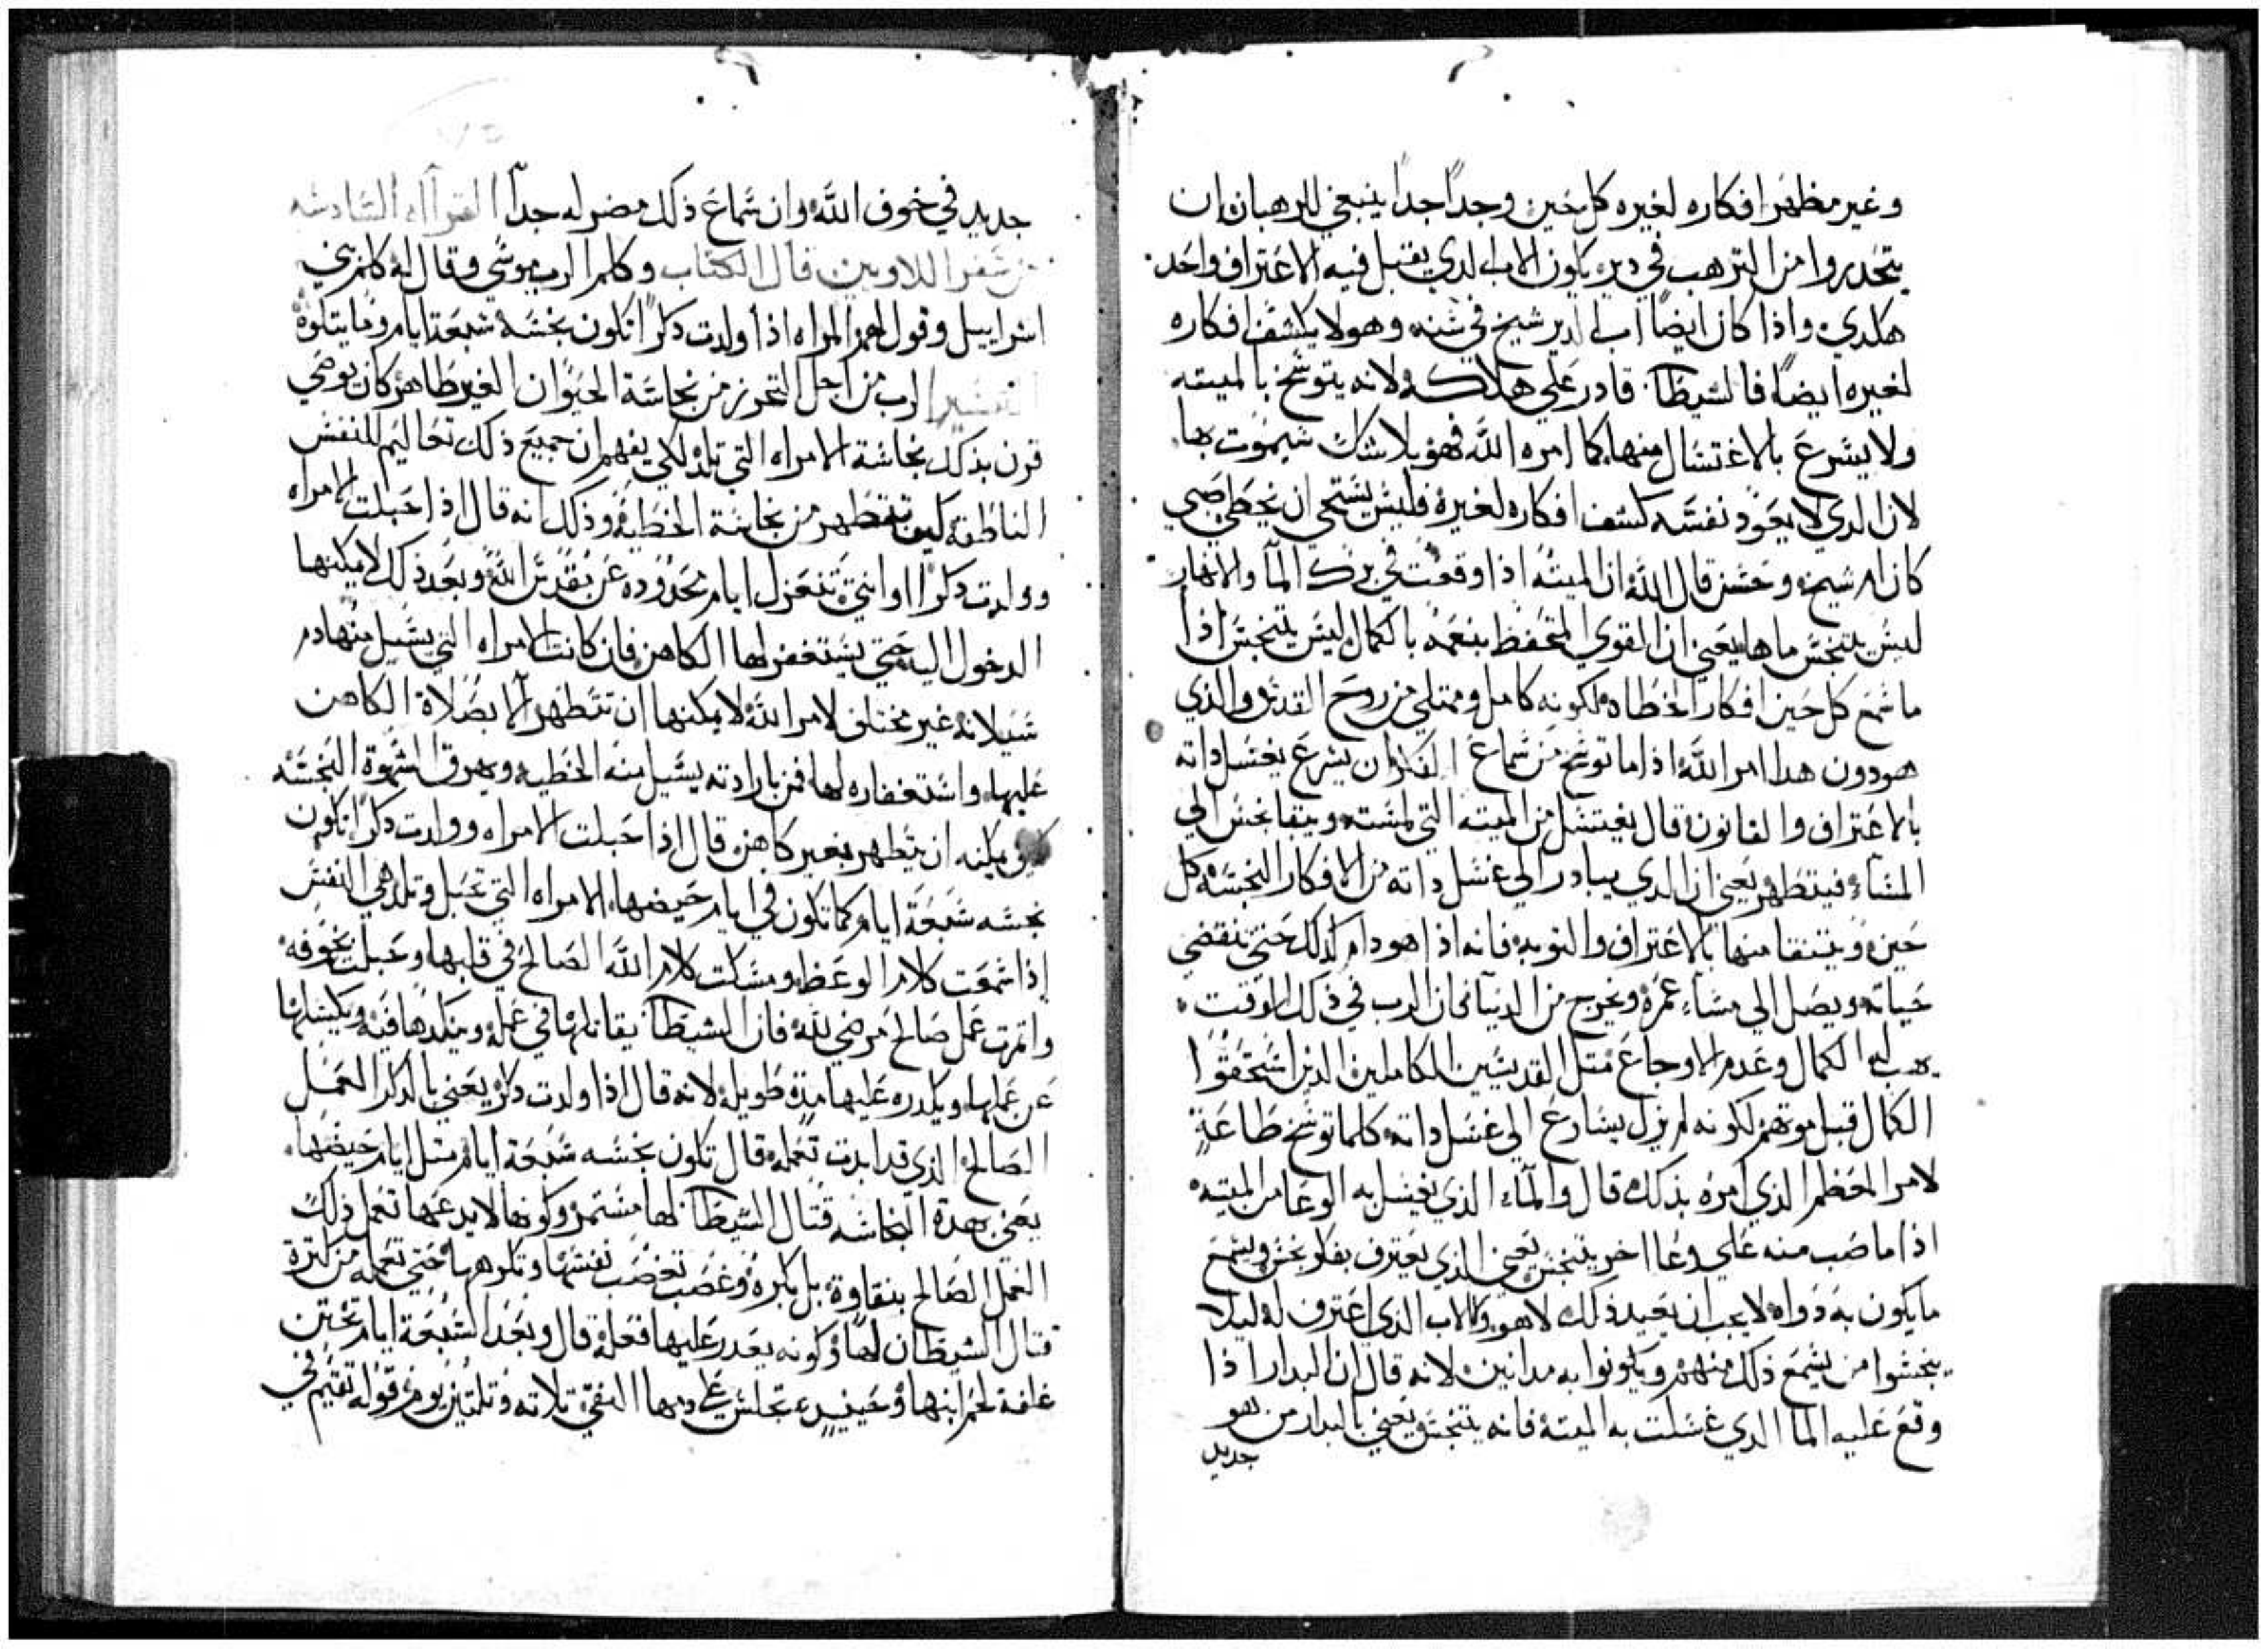 وغير مظهر افكاره لغيره كل حين وجداً جداً ينبغي للرهبان ان
يتحدروا من الترهب في دير يكون الاب الدي يقتبل فيه الاعتراف واحد
هكدي واذا كان ايضاً اب الدير شيخ في سنه وهو لا يكشف افكاره
لغيره ايضاً فالشيطان قادر علي هلاكه لانه يتوسخ بالميته
ولا يسرع بالاغتسال منها كما امره الله فهو بلا شك سيموت بها
لان الدي لا يعود نفسه كشف افكاره لغيره فليس يستحي ان يخطي صبي
كان او شيخ وحسن قال الله ان الميته اذا وقعت في برك المآ والانهار
ليس يتنجس ماها يعني ان القوي المتحفظ بنعمه بالكمال ليس يتنجس اذا
ما سمع كل حين افكار الخطاه لكونه كامل وممتلي من روح القدس والذي
هو دون هدا امر الله اذا ما توسخ من سماع الفكر ان يسرع يغتسل داته
بالاعتراف والقانون قال يغتسل من الميته التي لمسته ويبقا نجس الي
المسآء فيتطهر يعني ان الدي يبادر الي غسل داته من الافكار النجسه كل
حين ويتنقا منها بالاعتراف والتوبه فانه اذا هو دام كدلك حتي تنقضي
حياته ويصل الي مسآء عمره ويخرج من الدنيا فان الرب في ذلك الوقت
يهب له الكمال وعدم الاوجاع متل القديسين الكاملين الذين استحقوا
الكمال قبل موتهم لكونه لم يزل يسارع الي غسل داته كلما توسخ طاعةٍ
لامر المعظم الذي امره بذلك قال والمآء الذي يغسل به الوعا من الميته
اذا ما صب منه علي وعا اخر يتنجس يعني الذي يعترف بفكر نجس ويسمع
ما يكون به دواه لا يجب ان يعيد ذلك لا هو ولا الاب الذي اعترف له ليلا
يتنجسوا من يسمع ذلك منهم ويكونوا به مدانين لانه قال ان البدار اذا
وقع عليه الما الدي غسلت به الميته فانه يتنجس يعني بالبدار من هو
جديد
جديد في خوف الله وان سماع ذلك مضر له جداً القرآاه السادسه
من سفر اللاويين قال الكتاب وكلم الرب موسي وقال له كلم بني
اسراييل وقول لهم المراه اذا ولدت دكراً تكون نجسه سبعة ايام وما يتلوه
التفسير الرب من اجل التحرز من نجاسة الحيوان الغير طاهر كان يوصي
قرن بذلك نجاسة الامراه التي تلد لكي يفهم ان جميع ذلك تعاليم للنفس
الناطقه كيف تتطهر من نجاسة الخطيه وذلك انه قال اذا حبلت الامراه
وولدت دكراً او انتي تنعزل ايام محدوده عن قدس الله وبعد ذلك لا يمكنها
الدخول اليه حتي يستغفر لها الكاهن فان كانت الامراه التي يسيل منها دم
سيلانه غير مختلف لامر الله لا يمكنها ان تتطهر الا بصلاة الكاهن
عليها واستغفاره لها فمن بارادته يسيل منه الخطيه ويهرق الشهوة النجسه
كيف يمكنه ان يتطهر بغير كاهن قال اذا حبلت الامراه وولدت دكراً تكون
نجسه سبعة ايام كما تكون في ايام حيضها الامراه التي تحبل وتلد هي النفس
اذا سمعت كلام الوعظ ومسكت كلام الله الصالح في قلبها وحبلت بخوفه
واتمرت عمل صالح مرضي لله فان الشيطان يقاتلها في عمله وينكدها فيه ويكسلها
عن عملها ويكدره عليها مدة طويله لانه قال اذا ولدت دكر يعني بالدكر العمل
الصالح الذي قد ابدت تعمله قال تكون نجسه سبعة ايام متل ايام حيضها
يعني بهدة النجاسه قتال الشيطان لها مستمر وكونه لا يدعها تعمل ذلك
العمل الصالح بنقاوة بل بكره وغصب تغصب نفسها وتكرهها حتي تعمله من كترة
قتال الشيطان لها وكونه يعدر عليها فعله قال وبعد السبعة ايام تختن
غلفة لحم ابنها وحينيدٍ تجلس علي دمها النقي تلاته وتلتين يوم قوله تقيم في